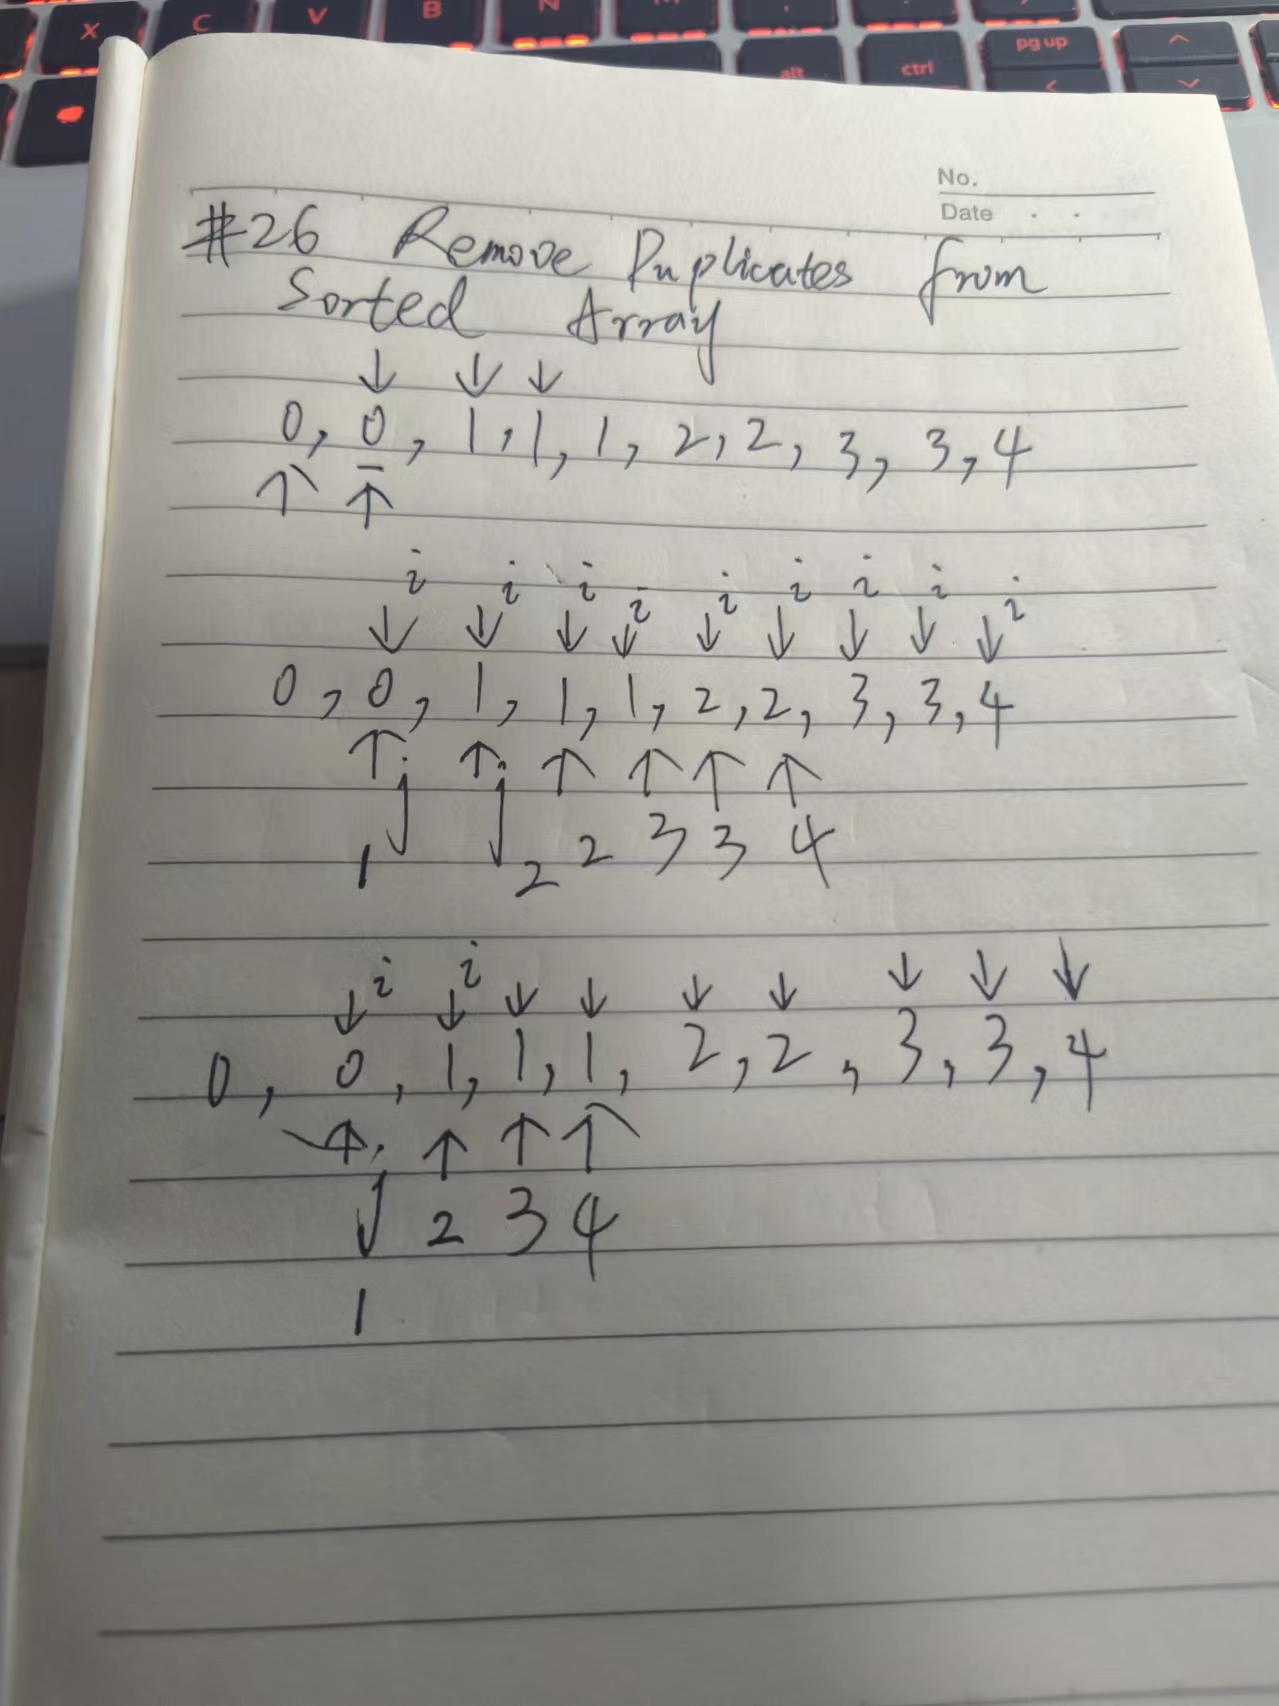 X C V B N M
alt ctrl pg up
No.
Date
#26 Remove Duplicates from
Sorted Array
↓ ↓ ↓
0, 0, 1, 1, 1, 2, 2, 3, 3, 4
↑ ↑
i i i i i i i i i
↓ ↓ ↓ ↓ ↓ ↓ ↓ ↓ ↓
0, 0, 1, 1, 1, 2, 2, 3, 3, 4
↑ ↑ ↑ ↑ ↑ ↑
j j
1 2 2 3 3 4
i i
↓ ↓ ↓ ↓ ↓ ↓ ↓ ↓ ↓
0, 0, 1, 1, 1, 2, 2, 3, 3, 4
↑ ↑ ↑ ↑
j 2 3 4
1